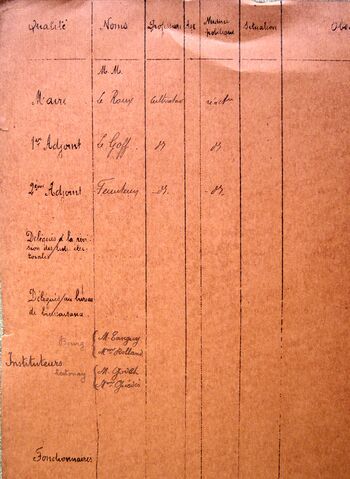 Qualité Noms Profession Age Nuance politique Situation Obs
M.M.
Maire Le Roux cultivateur réact
1er Adjoint Le Goff d° d°
2ème Adjoint d° d°
Délégués à la révi-
sion des listes élec-
torales
Délégués au bureau
de bienfaisance
Bourg M. Tanguy
Mme Rolland
Instituteurs
M.
Mme
Fonctionnaires